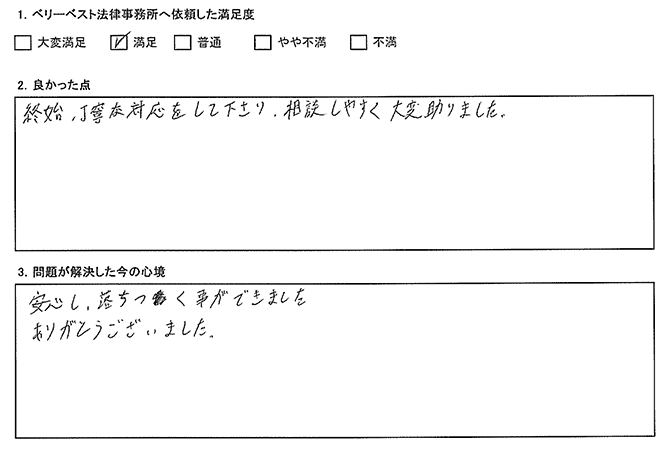 1. ベリーベスト法律事務所へ依頼した満足度
□ 大変満足 ☑ 満足 □ 普通 □ やや不満 □ 不満
2. 良かった点
終始、丁寧な対応をして下さり、相談しやすく大変助りました。
3. 問題が解決した今の心境
安心し、落ちつく事ができました
ありがとうございました。